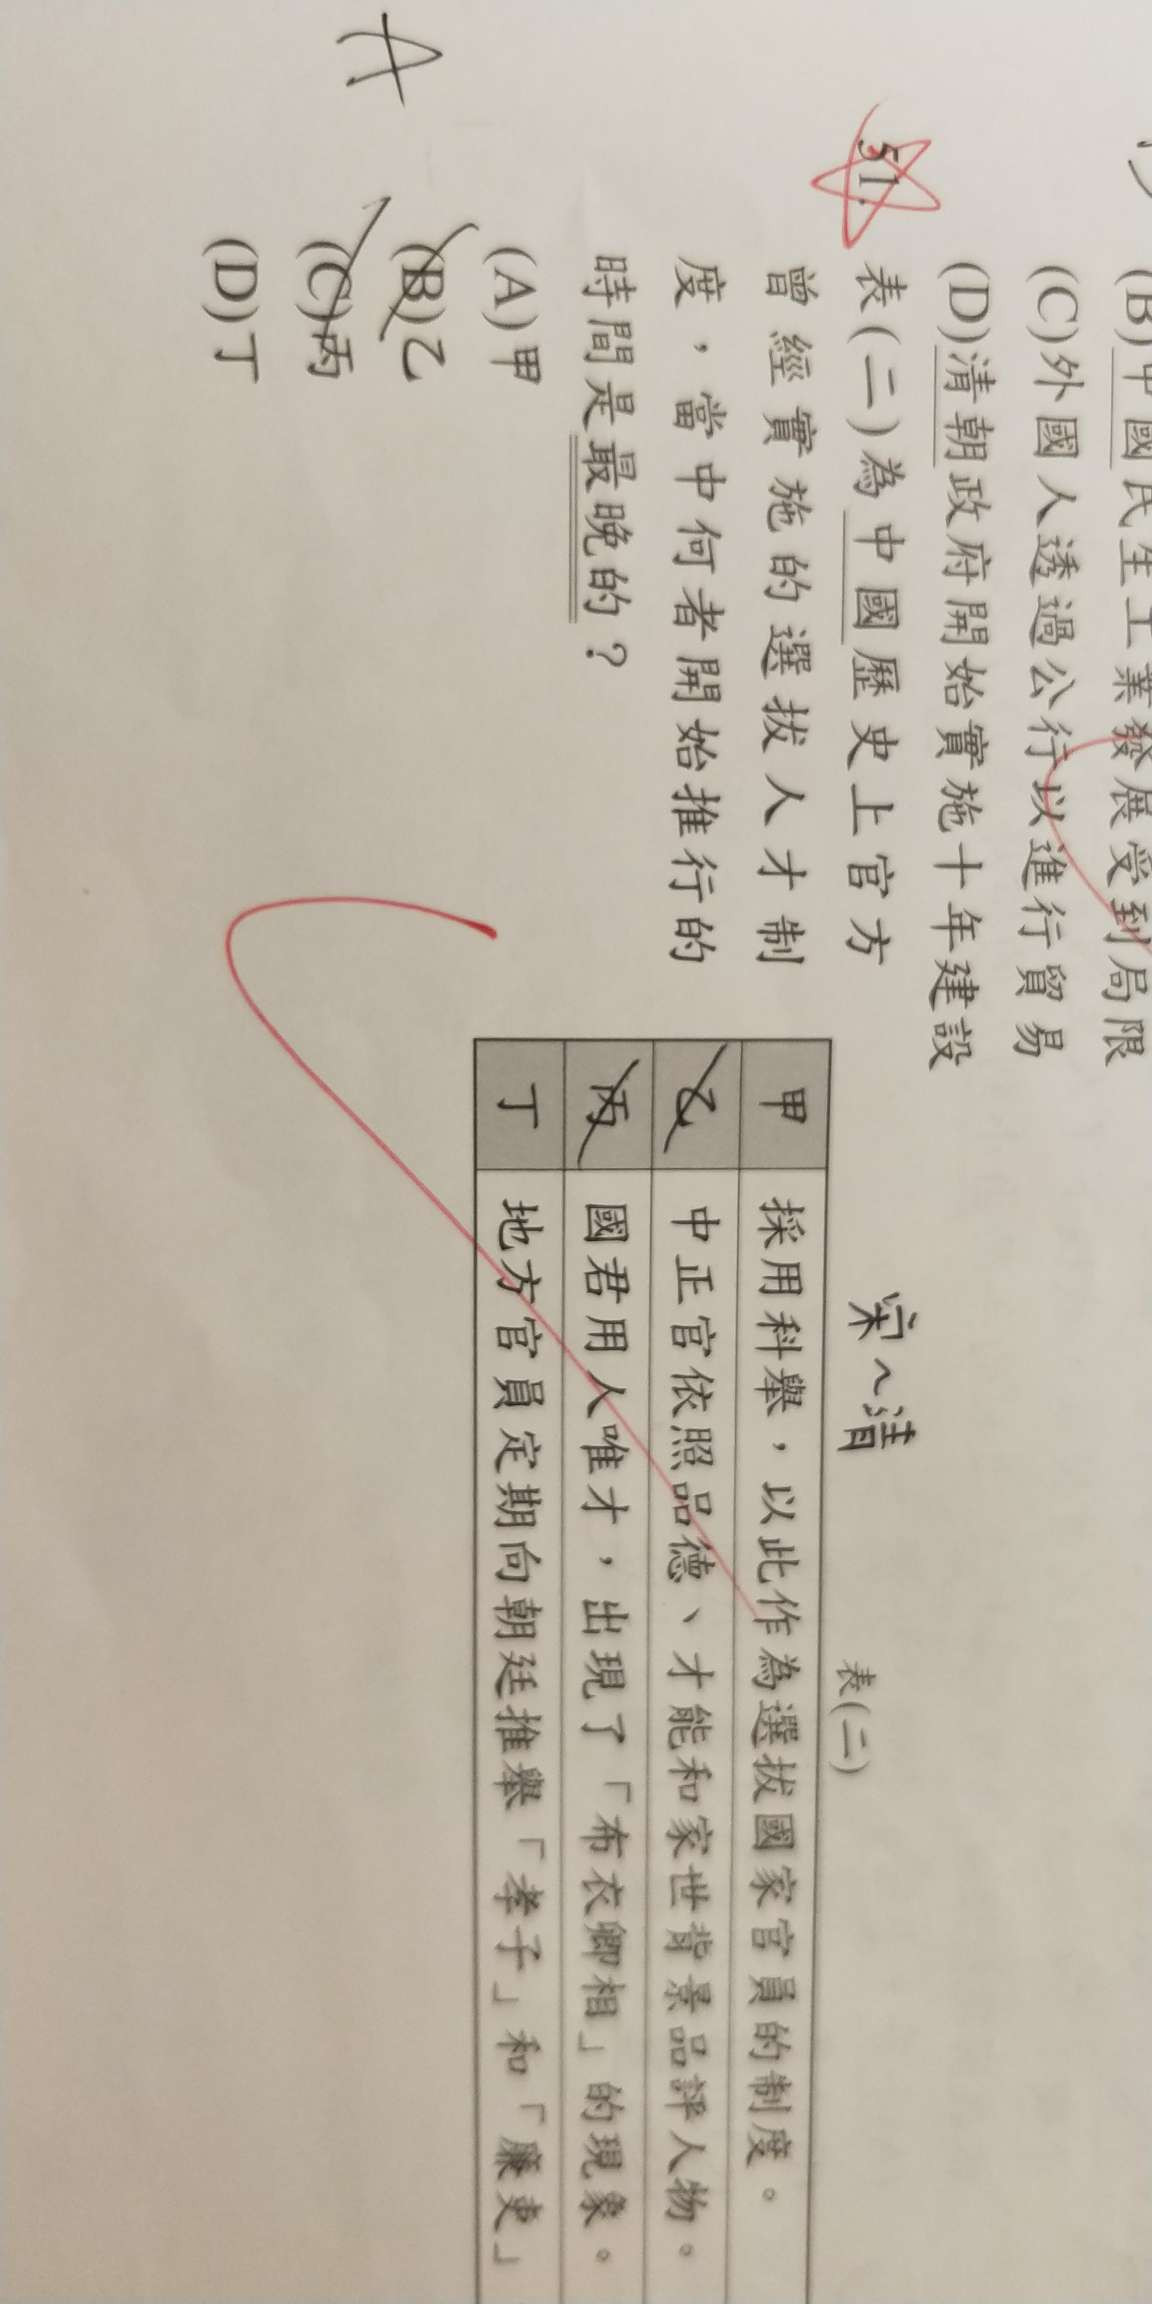 (B)中國民生工業發展受到局限
(C)外國人透過公行以進行貿易
(D)清朝政府開始實施十年建設
51.
表(二)為中國歷史上官方
曾經實施的選拔人才制
度，當中何者開始推行的
時間是最晚的？
(A)甲
(B)乙
(C)丙
(D)丁
A
宋~清
表(二)
甲 採用科舉，以此作為選拔國家官員的制度。
乙 中正官依照品德、才能和家世背景品評人物。
丙 國君用人唯才，出現了「布衣卿相」的現象。
丁 地方官員定期向朝廷推舉「孝子」和「廉吏」